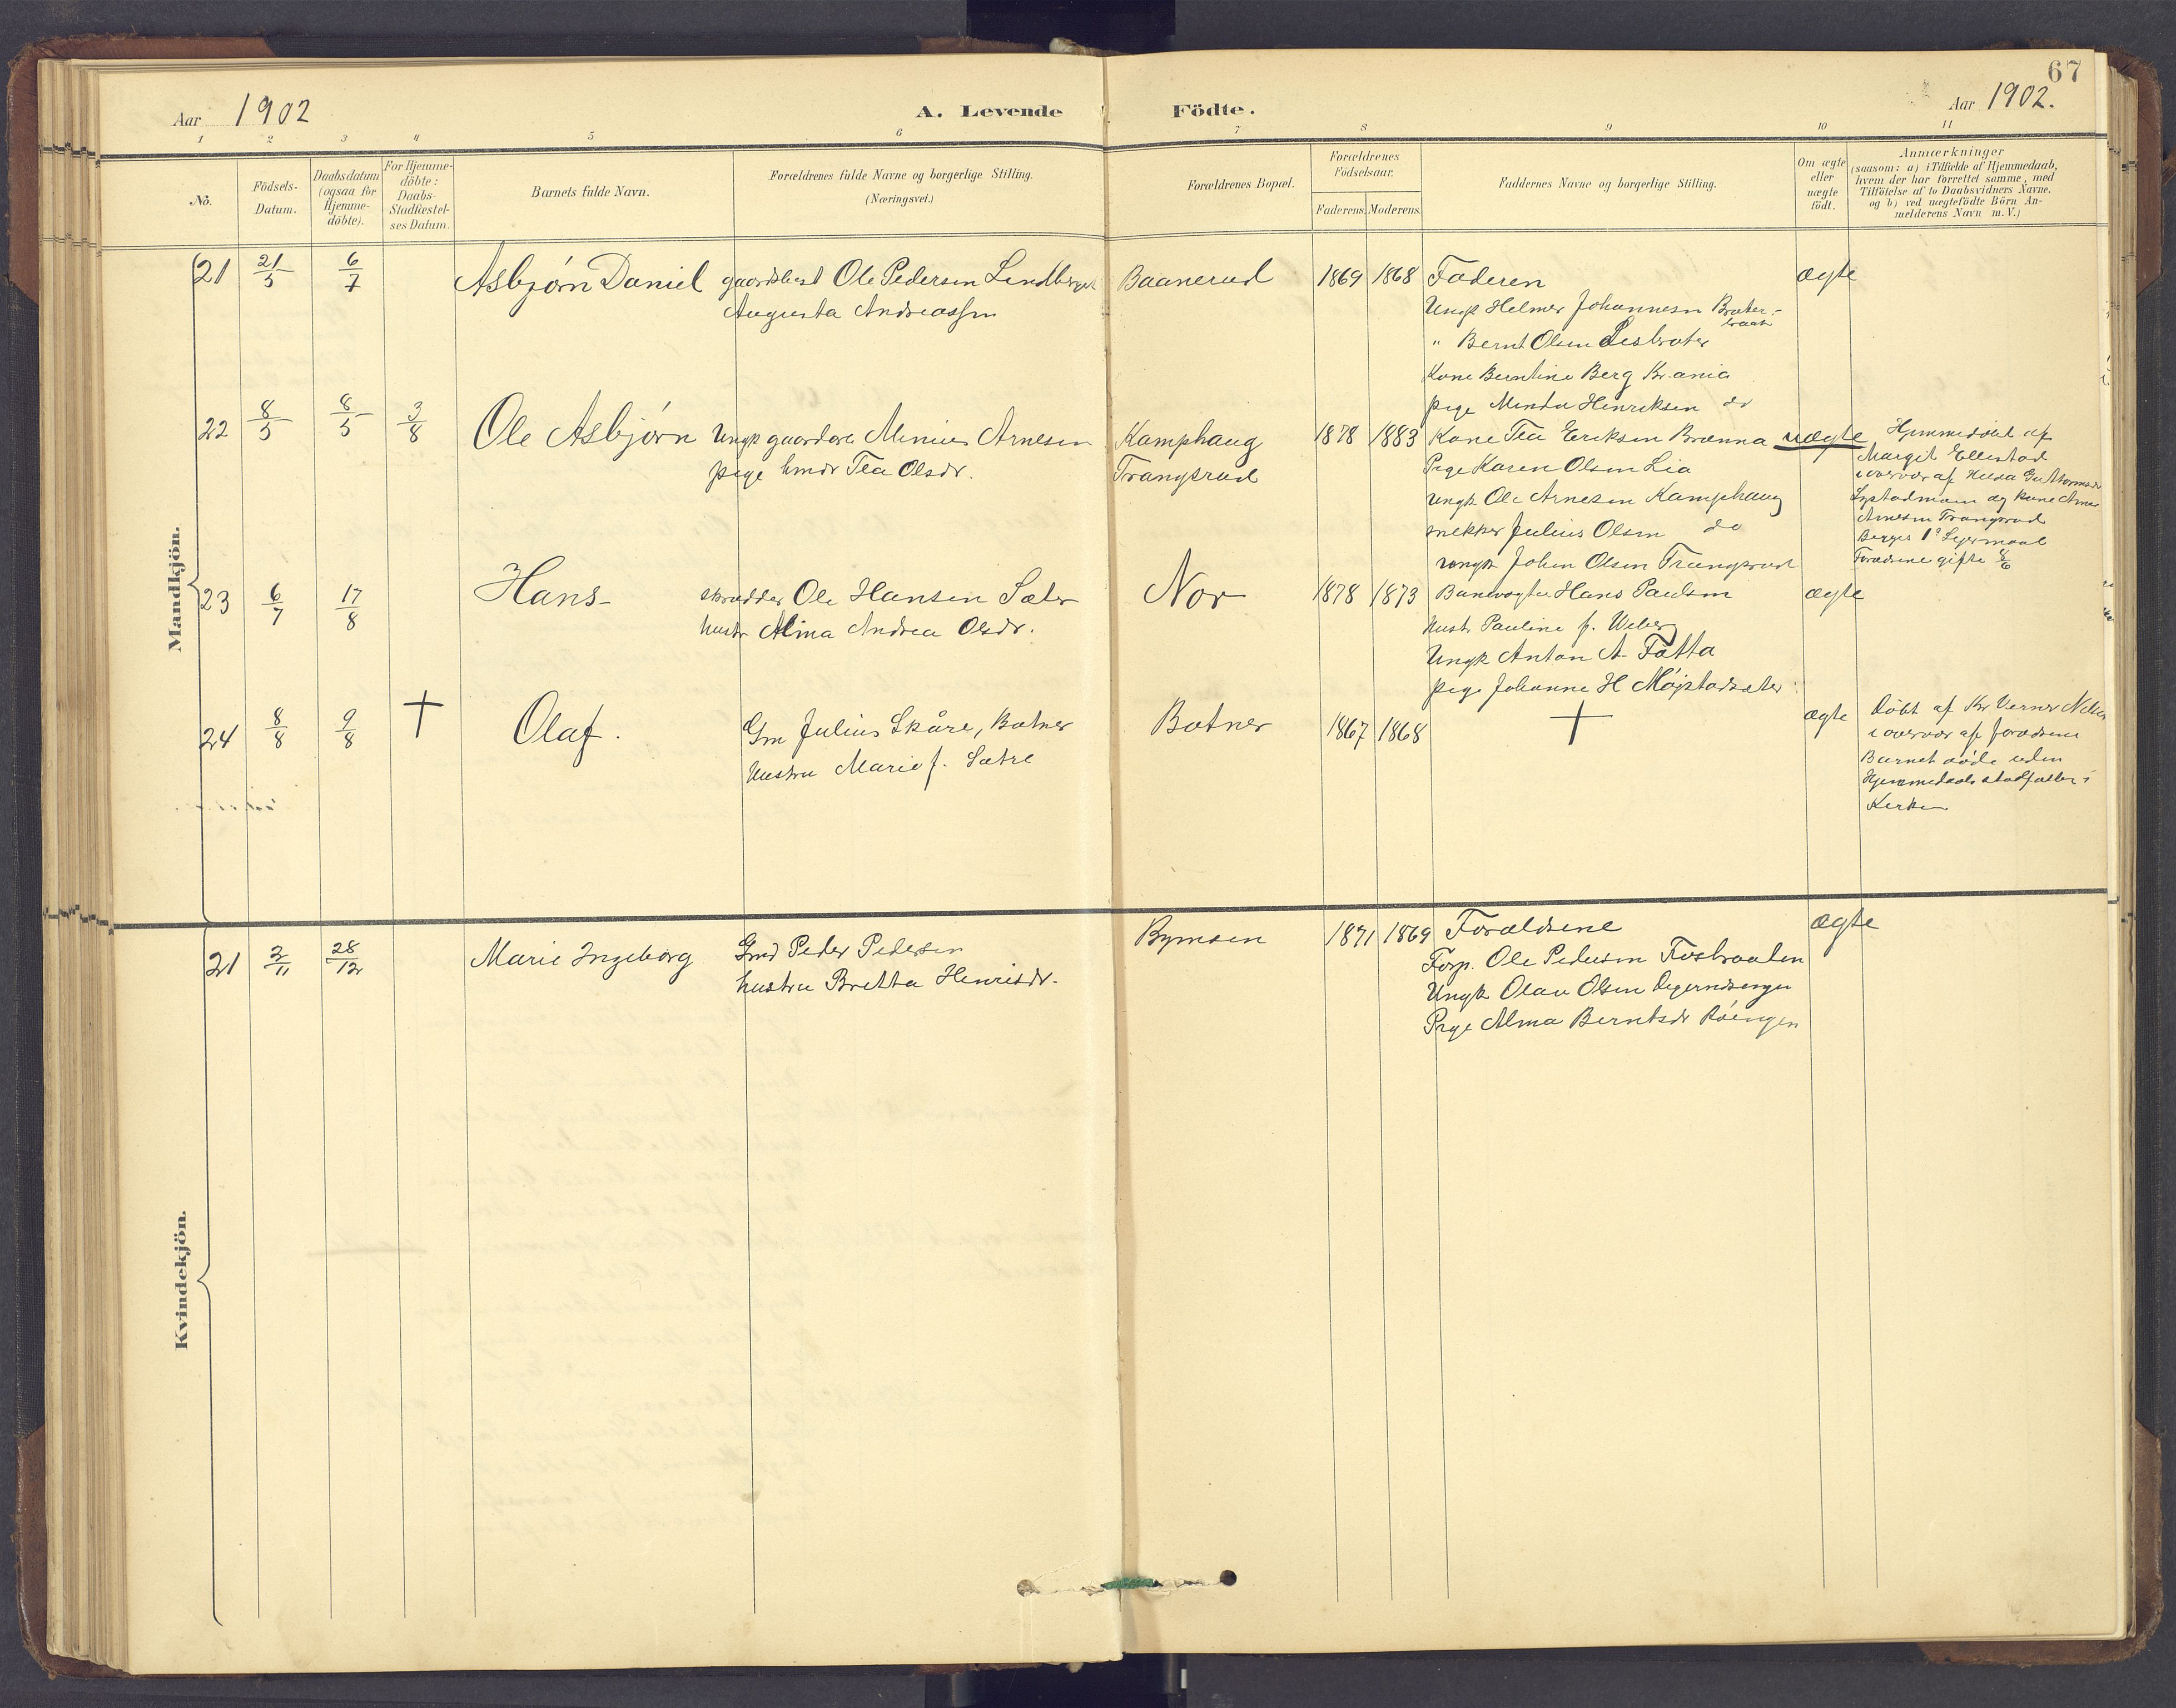 67
Aar 1902
A. Levende Födte.
Aar 1902.
1 2 3 4 5 6 7 8 9 10 11
No.
Födsels-
Datum.
Daabsdatum
(ogsaa for
Hjemme-
döbte).
For Hjemme-
döbte:
Daabs-
Stadfæstel-
ses Datum.
Barnets fulde Navn.
Forældrenes fulde Navne og borgerlige Stilling.
(Næringsvei.)
Forældrenes Bopæl.
Forældrenes
Födselsaar.
Faderens. Moderens.
Faddernes Navne og borgerlige Stilling.
Om ægte
eller
uægte
födt.
Anmærkninger
(saasom: a) i Tilfælde af Hjemmedaab,
hvem der har forrettet samme, med
Tilföielse af to Daabsvidners Navne.
og b) ved uægtefödte Börn An-
melderens Navn m. V.)
Mandkjön.
21 21/5 6/7 Asbjørn Daniel
Ole Pedersen
Augusta Andreassen
Baanerud 1869 1868
Faderen
Ungk Helmer Johannesen
" Bernt Olsen
Kone Berntine Berg Kr.ania
pige Minda Henriksen do
ægte
22 8/5 8/5 3/8 Ole Asbjørn
Ungk gaardarb Minius Arnesen
pige hmdr Tea Olsdr.
Kamphaug
Trangsrud
1878 1883
Kone Tea Eriksen Brænna
Pige Karen Olsen Lia
Ungk Ole Arnesen Kamphaug
snekker Julius Olsen do
ungk Johan Olsen Trangsrud
uægte
Hjemmedøbt af
Margit Ellestad
i overvær af
og kone
Arnesen Trangsrud
Begges 1ste Leiermaal
Forældrene gifte 8/6
23 6/7 17/8 Hans
skrædder Ole Hansen Sæter
hustr Alma Andrea Olsdr.
Nor 1878 1873
Banevogter Hans Paulsen
hustr Pauline f. Weberg
Ungk Anton A Fatta
pige Johanne H
ægte
24 8/8 9/8 + Olaf.
Gm Julius Skåre, Botner
hustru Marie f. Sætre
Botner 1867 1868 +
ægte
døbt af Kr Verner
i overvær af forældrene
Barnet døde uden
Hjemmedaabs stadfæstelse i
Kirken
Kvindekjön.
21 2/11 28/12 Marie Ingeborg
Gmd Peder Pedersen
hustru Bretta Henrisdr.
Bymoen 1871 1869
Forældrene
Forp. Ole Pedersen Fosbraaten
Ungk Olav Olsen
Pige Alma Berntsdr Røengen
ægte